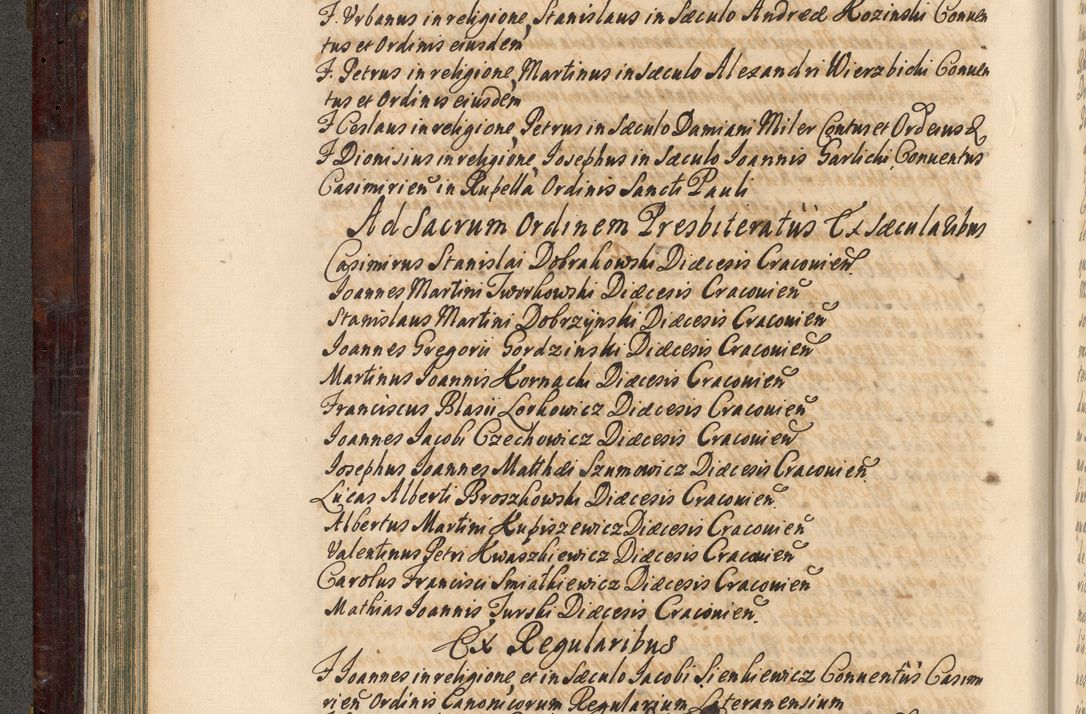 F. Vrbanus in religione, Stanislaus in Sæculo Andreæ Kozinski Conuen
tus et Ordinis eiusdem
F. Petrus in religione, Martinus in sæculo Alexandri Wierzbicki Conuen
tus et Ordinis eiusdem
F Ceslaus in religione, Petrus in Sæculo Damiani Miler Contus et Ord eius &
F Dionisius in religione, Iosephus in sæculo Ioannis Garlicki, Conuentus
Casimirien̄ in Rupella Ordinis Sancti Pauli
Ad Sacrum Ordinem Presbiteratus Ex sæcularibus
Casimirus Stanislai Dobrakowski Diæcesis Cracouien̄.
Ioannes Martini Tworkowski Diæcesis Cracouien̄
Stanislaus Martini Dobrzynski Diæcesis Cracouien̄
Ioannes Gregorii Gordzinski Diæcesis Cracouien̄
Martinus Ioannis Kornacki Diæcesis Cracouien̄
Franciscus Blasii Lorkowicz Diæcesis Cracouien̄
Ioannes Iacobi Czechowicz Diæcesis Cracouien̄
Iosephus Ioannes Matthæi Szumowicz Diæcesis Cracouien̄.
Lucas Alberti Broszkowski Diæcesis Cracouien̄.
Albertus Martini Kupiszewicz Diæcesis Cracouien̄
Valentinus Petri Kwaszkiewicz Diæcesis Cracouien̄
Carolus Francisci Smiatkiewicz Diæcesis Cracouien̄
Mathias Ioannis Turski Diæcesis Cracouien̄.
Ex Regularibus
F Ioannes in religione, et in Sæculo Iacobi Sienkiewicz Conuentus Casimi
rien̄ Ordinis Canonicorum Regularium Lateranensium